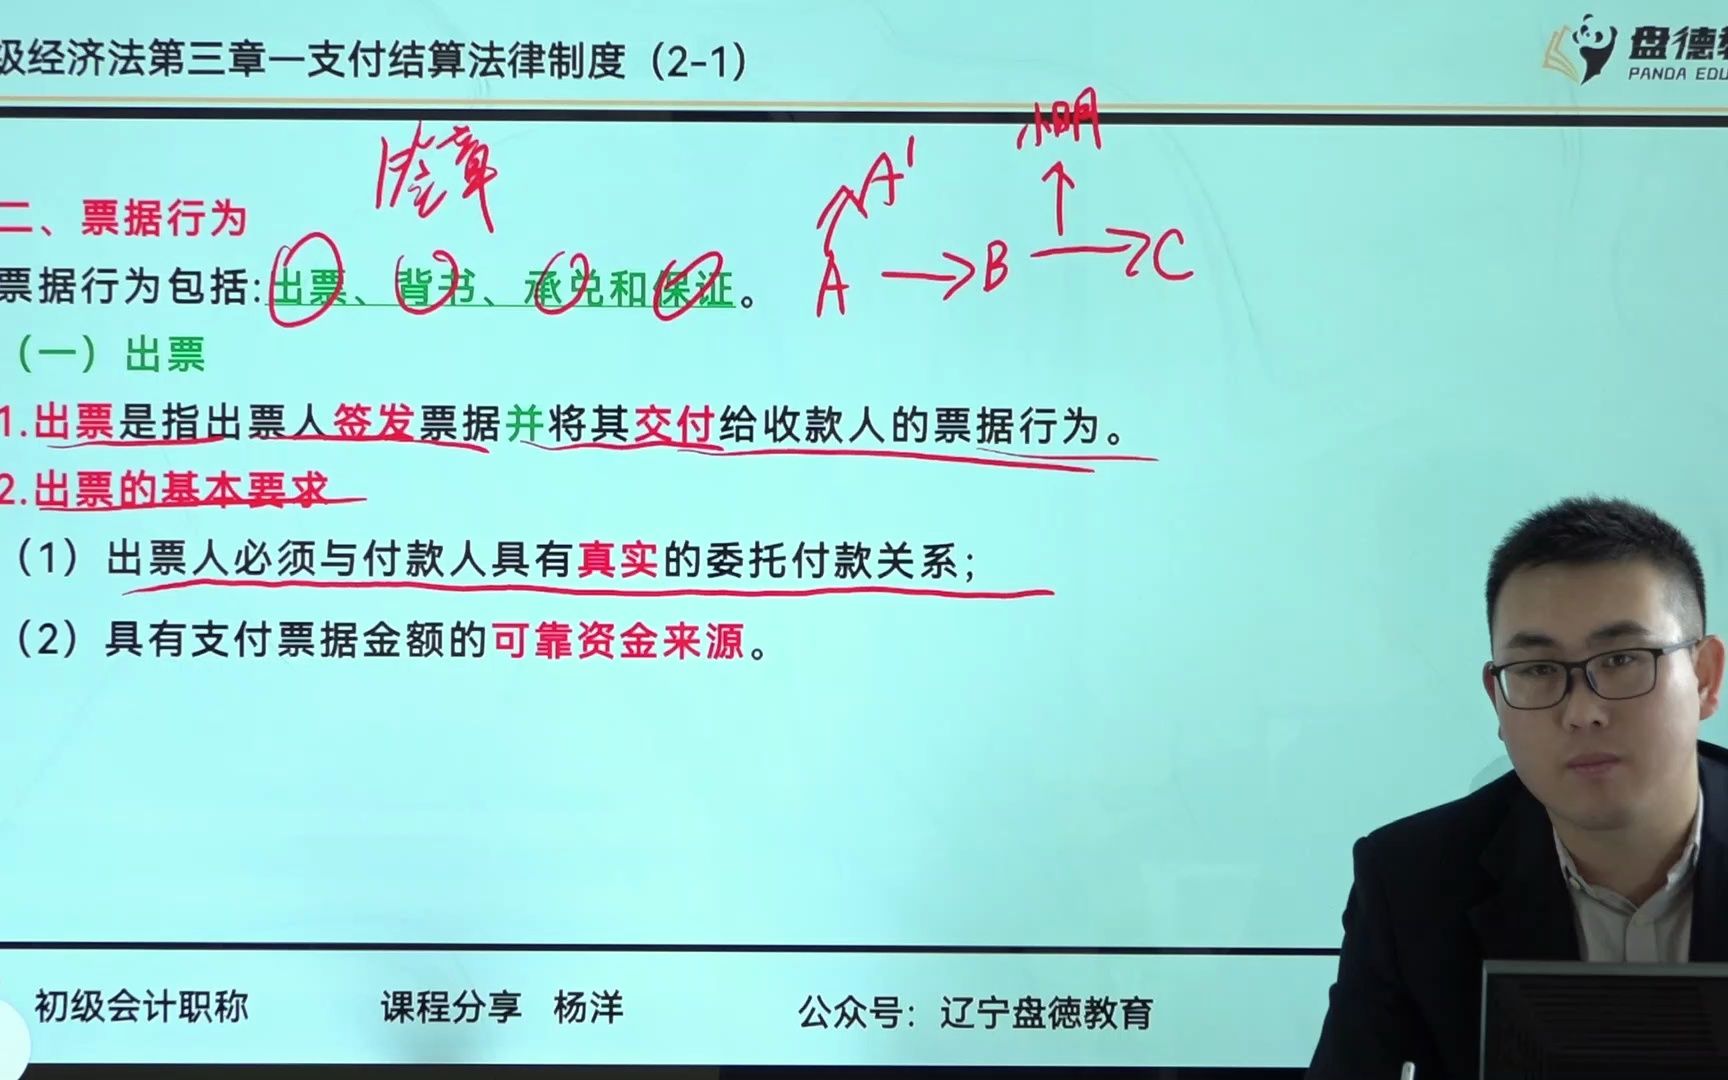 级经济法第三章一支付结算法律制度（2-1）
盘德教
PANDA EDU
签章
小明
A'
A → B → C
二、票据行为
票据行为包括:出票、背书、承兑和保证。
（一）出票
1.出票是指出票人签发票据并将其交付给收款人的票据行为。
2.出票的基本要求
（1）出票人必须与付款人具有真实的委托付款关系；
（2）具有支付票据金额的可靠资金来源。
初级会计职称
课程分享 杨洋
公众号：辽宁盘德教育